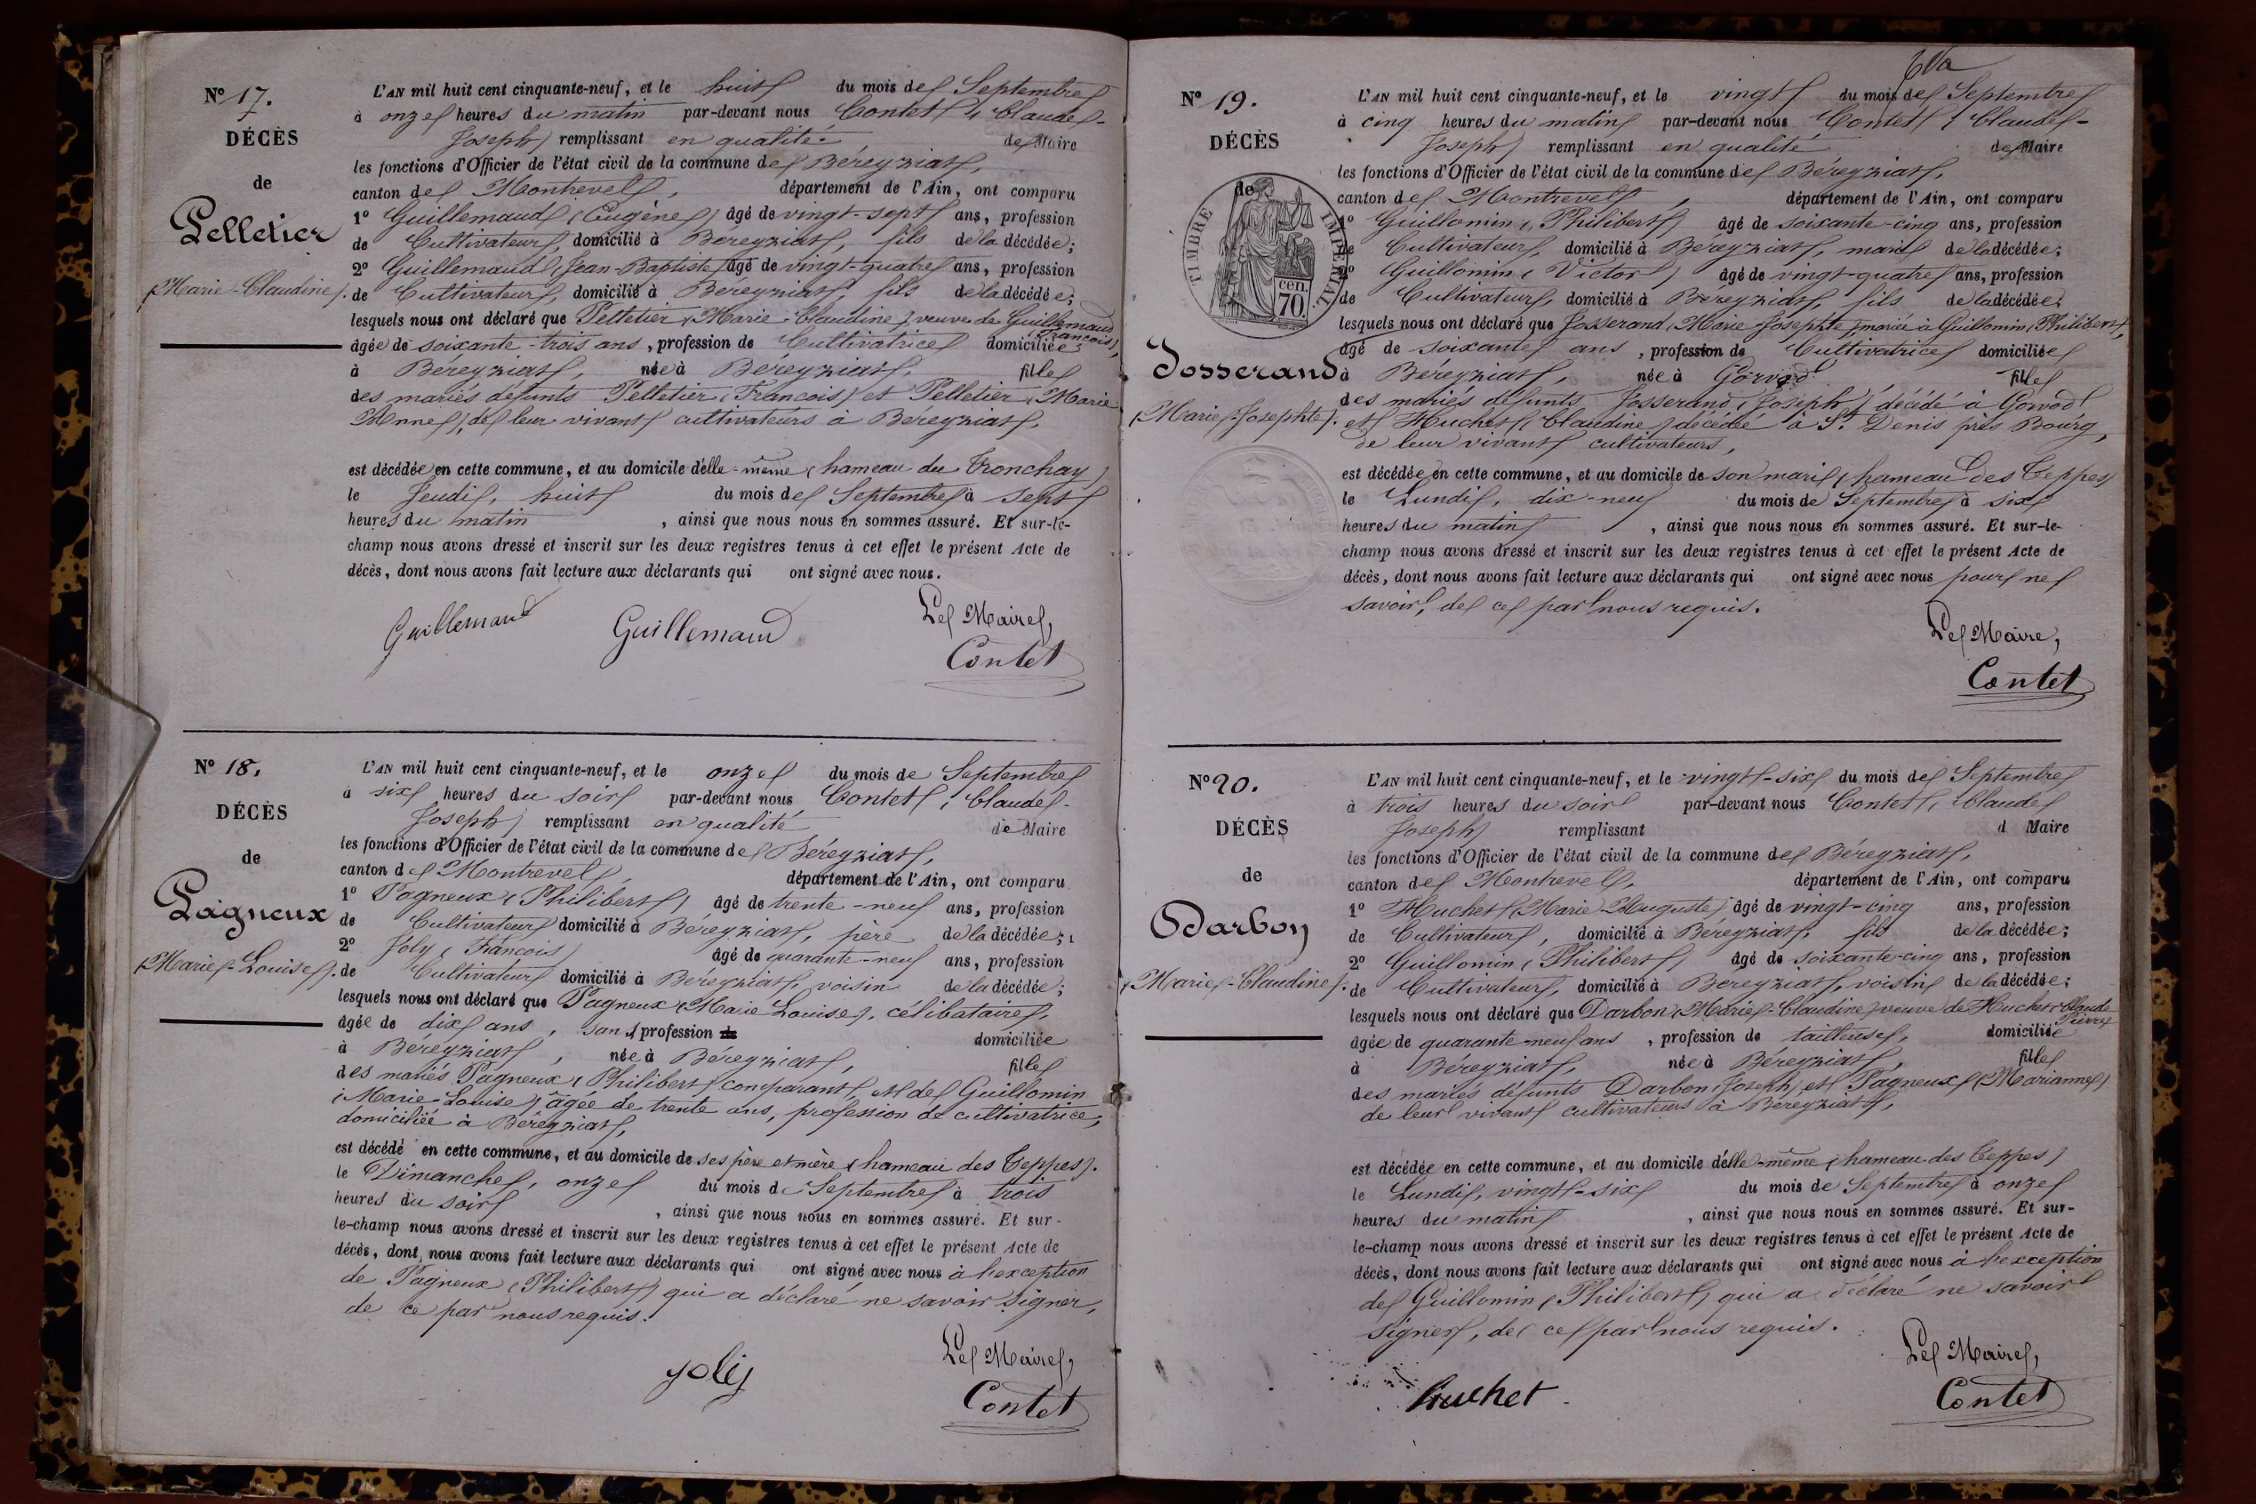 N° 17.
DÉCÈS
de
Pelletier
(Marie-Claudine).
L'AN mil huit cent cinquante-neuf, et le huit du mois de Septembre
à onze heures du matin par-devant nous Contet (Claude-
Joseph) remplissant en qualité de Maire
les fonctions d'Officier de l'état civil de la commune de Béréyziat,
canton de Montrevel, département de l'Ain, ont comparu
1° Guillemaud (Eugène) âgé de vingt-sept ans, profession
de Cultivateur, domicilié à Béréyziat, fils de la décédée;
2° Guillemaud (Jean-Baptiste) âgé de vingt-quatre ans, profession
de Cultivateur, domicilié à Béréyziat, fils de la décédée;
lesquels nous ont déclaré que Pelletier (Marie-Claudine) veuve de Guillemaud
(François),
âgée de soixante-trois ans, profession de Cultivatrice domiciliée
à Béréyziat, née à Béréyziat, fille
des mariés défunts Pelletier (François) et Pelletier (Marie
Anne), de leur vivant cultivateurs à Béréyziat,
est décédée en cette commune, et au domicile d'elle-même (hameau du Tronchay)
le Jeudi, huit du mois de Septembre à sept
heures du matin, ainsi que nous nous en sommes assuré. Et sur-le-
champ nous avons dressé et inscrit sur les deux registres tenus à cet effet le présent Acte de
décès, dont nous avons fait lecture aux déclarants qui ont signé avec nous.
Guillemaud Guillemaud Le Maire,
Contet
N° 18.
DÉCÈS
de
Pagneux
(Marie-Louise).
L'AN mil huit cent cinquante-neuf, et le onze du mois de Septembre
à six heures du soir par-devant nous Contet (Claude-
Joseph) remplissant en qualité de Maire
les fonctions d'Officier de l'état civil de la commune de Béréyziat,
canton de Montrevel, département de l'Ain, ont comparu
1° Pagneux (Philibert) âgé de trente-neuf ans, profession
de Cultivateur domicilié à Béréyziat, père de la décédée;
2° Joly (François) âgé de quarante-neuf ans, profession
de Cultivateur domicilié à Béréyziat, voisin de la décédée;
lesquels nous ont déclaré que Pagneux (Marie Louise), célibataire,
âgée de dix ans, sans profession de domiciliée
à Béréyziat, née à Béréyziat, fille
des mariés Pagneux (Philibert) comparant, et de Guillomin
(Marie-Louise) âgée de trente ans, profession de cultivatrice,
domiciliée à Béréyziat,
est décédé en cette commune, et au domicile de ses père et mère (hameau des Teppes).
le Dimanche, onze du mois de Septembre à trois
heures du soir, ainsi que nous nous en sommes assuré. Et sur-
le-champ nous avons dressé et inscrit sur les deux registres tenus à cet effet le présent Acte de
décès, dont nous avons fait lecture aux déclarants qui ont signé avec nous à l'exception
de Pagneux (Philibert) qui a déclaré ne savoir signer,
de ce par nous requis.
Joly Le Maire,
Contet
N° 19.
DÉCÈS
de
TIMBRE IMPÉRIAL
70 cen.
Josserand
(Marie-Josephte).
L'AN mil huit cent cinquante-neuf, et le vingt du mois de Septembre
à cinq heures du matin par-devant nous Contet (Claude-
Joseph) remplissant en qualité de Maire
les fonctions d'Officier de l'état civil de la commune de Béréyziat,
canton de Montrevel, département de l'Ain, ont comparu
1° Guillomin (Philibert) âgé de soixante-cinq ans, profession
de Cultivateur, domicilié à Béréyziat, mari de la décédée;
2° Guillomin (Victor) âgé de vingt-quatre ans, profession
de Cultivateur, domicilié à Béréyziat, fils de la décédée;
lesquels nous ont déclaré que Josserand (Marie-Josephte) mariée à Guillomin (Philibert),
âgé de soixante ans, profession de Cultivatrice domiciliée
à Béréyziat, née à Gorvod fille
des mariés défunts Josserand (Joseph) décédé à Gorvod
et Huchet (Claudine) décédée à St. Denis près Bourg,
de leur vivant cultivateurs,
est décédée en cette commune, et au domicile de son mari (hameau des Teppes)
le Lundi, dix-neuf du mois de Septembre à six
heures du matin, ainsi que nous nous en sommes assuré. Et sur-le-
champ nous avons dressé et inscrit sur les deux registres tenus à cet effet le présent Acte de
décès, dont nous avons fait lecture aux déclarants qui ont signé avec nous pour ne
savoir, de ce par nous requis.
Le Maire,
Contet
N° 20.
DÉCÈS
de
Darbon
(Marie-Claudine).
L'AN mil huit cent cinquante-neuf, et le vingt-six du mois de Septembre
à trois heures du soir par-devant nous Contet (Claude
Joseph) remplissant d Maire
les fonctions d'Officier de l'état civil de la commune de Béréyziat,
canton de Montrevel, département de l'Ain, ont comparu
1° Huchet (Marie-Auguste) âgé de vingt-cinq ans, profession
de Cultivateur, domicilié à Béréyziat, fils de la décédée;
2° Guillomin (Philibert) âgé de soixante-cinq ans, profession
de Cultivateur, domicilié à Béréyziat, voisin de la décédée;
lesquels nous ont déclaré que Darbon (Marie-Claudine) veuve de Huchet (Claude
Pierre)
âgée de quarante-neuf ans, profession de tailleuse, domiciliée
à Béréyziat, née à Béréyziat, fille
des mariés défunts Darbon (Joseph) et Pagneux (Marianne)
de leur vivant cultivateurs à Béréyziat,
est décédée en cette commune, et au domicile d'elle-même (hameau des Teppes)
le Lundi, vingt-six du mois de Septembre à onze
heures du matin, ainsi que nous nous en sommes assuré. Et sur-
le-champ nous avons dressé et inscrit sur les deux registres tenus à cet effet le présent Acte de
décès, dont nous avons fait lecture aux déclarants qui ont signé avec nous à l'exception
de Guillomin (Philibert) qui a déclaré ne savoir
signer, de ce par nous requis.
Huchet Le Maire,
Contet